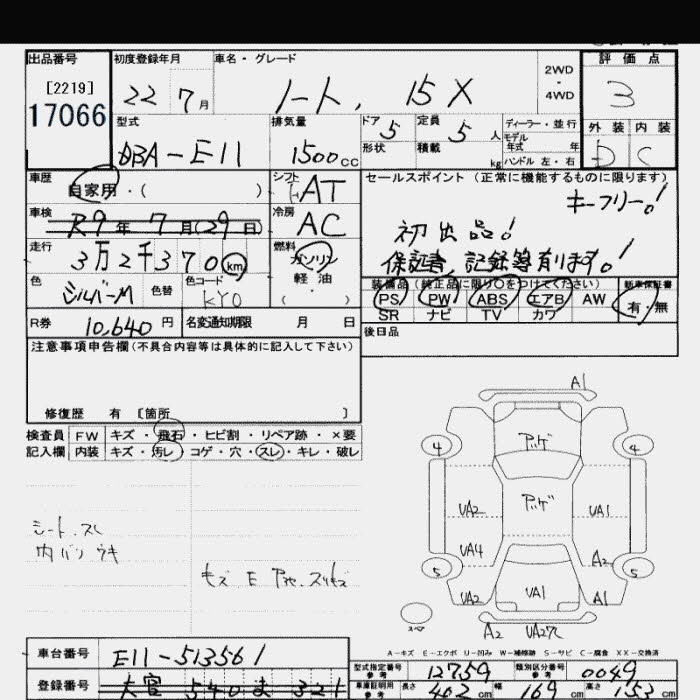 出品番号
[2219]
17066
初度登録年月
22 7月
車名・グレード
ノート, 15X
2WD
・
4WD
評価点
3
外装 内装
D C
型式
DBA-E11
排気量
1500cc
ドア 5
形状
定員 5人
積載 kg
ディーラー・並行
モデル
年式 年
ハンドル 左・右
車歴
自家用・( )
シフト
AT
車検
R9年7月(29日)
冷房
AC
走行
3万2千370km
燃料
ガソリン
軽・油
・( )
色
シルバーM
色替
色コード
KY0
R券
10,640円
名変通知期限 月 日
セールスポイント (正常に機能するものに限ります)
キーフリー!
初出品!
保証書、記録簿有ります!
装備品 (純正品に限り○をつけてください)
PS PW ABS エアB AW
SR ナビ TV カワ
新車保証書
有・無
後日品
注意事項申告欄(不具合内容等は具体的に記入して下さい)
修復歴 有 〔箇所 〕
検査員 FW キズ・飛石・ヒビ割・リペア跡・×要
記入欄 内装 キズ・汚レ・コゲ・穴・スレ・キレ・破レ
シート、スレ
内バリ ウキ
キズ E アゲ、スリキズ
A1
4 アッゲ 4
アッゲ
UA2 UA1
UA4 A2
5 5
UA2 UA1 A1
スペア
A2 UA27C
A-キズ E-エクボ U-凹み W-補修跡 S-サビ C-腐食 XX-交換済
車台番号
E11-513561
登録番号
540 321
型式指定番号
参考
12759
類別区分番号
参考
0049
車庫証明用
参考
長さ 402cm 幅 169cm 高さ 153cm